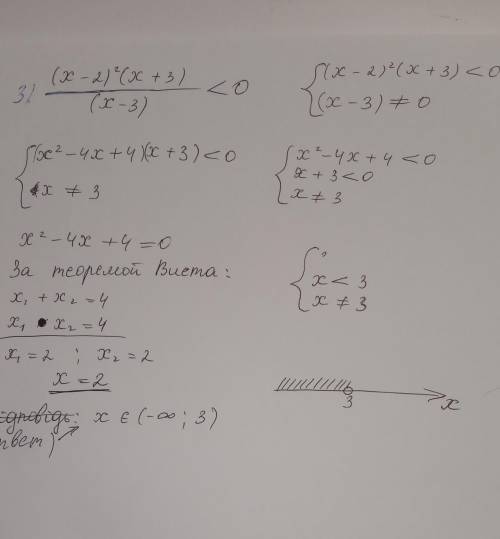 3) (x-2)²(x+3) / (x-3) < 0
{ (x-2)²(x+3) < 0
(x-3) ≠ 0
{ (x²-4x+4)(x+3) < 0
x ≠ 3
{ x²-4x+4 < 0
x+3 < 0
x ≠ 3
x²-4x+4=0
За теоремой Виета:
x₁ + x₂ = 4
x₁ • x₂ = 4
x₁ = 2 ; x₂ = 2
x = 2
{
x < 3
x ≠ 3
3 x
відповідь: x ∈ (-∞; 3)
ответ)